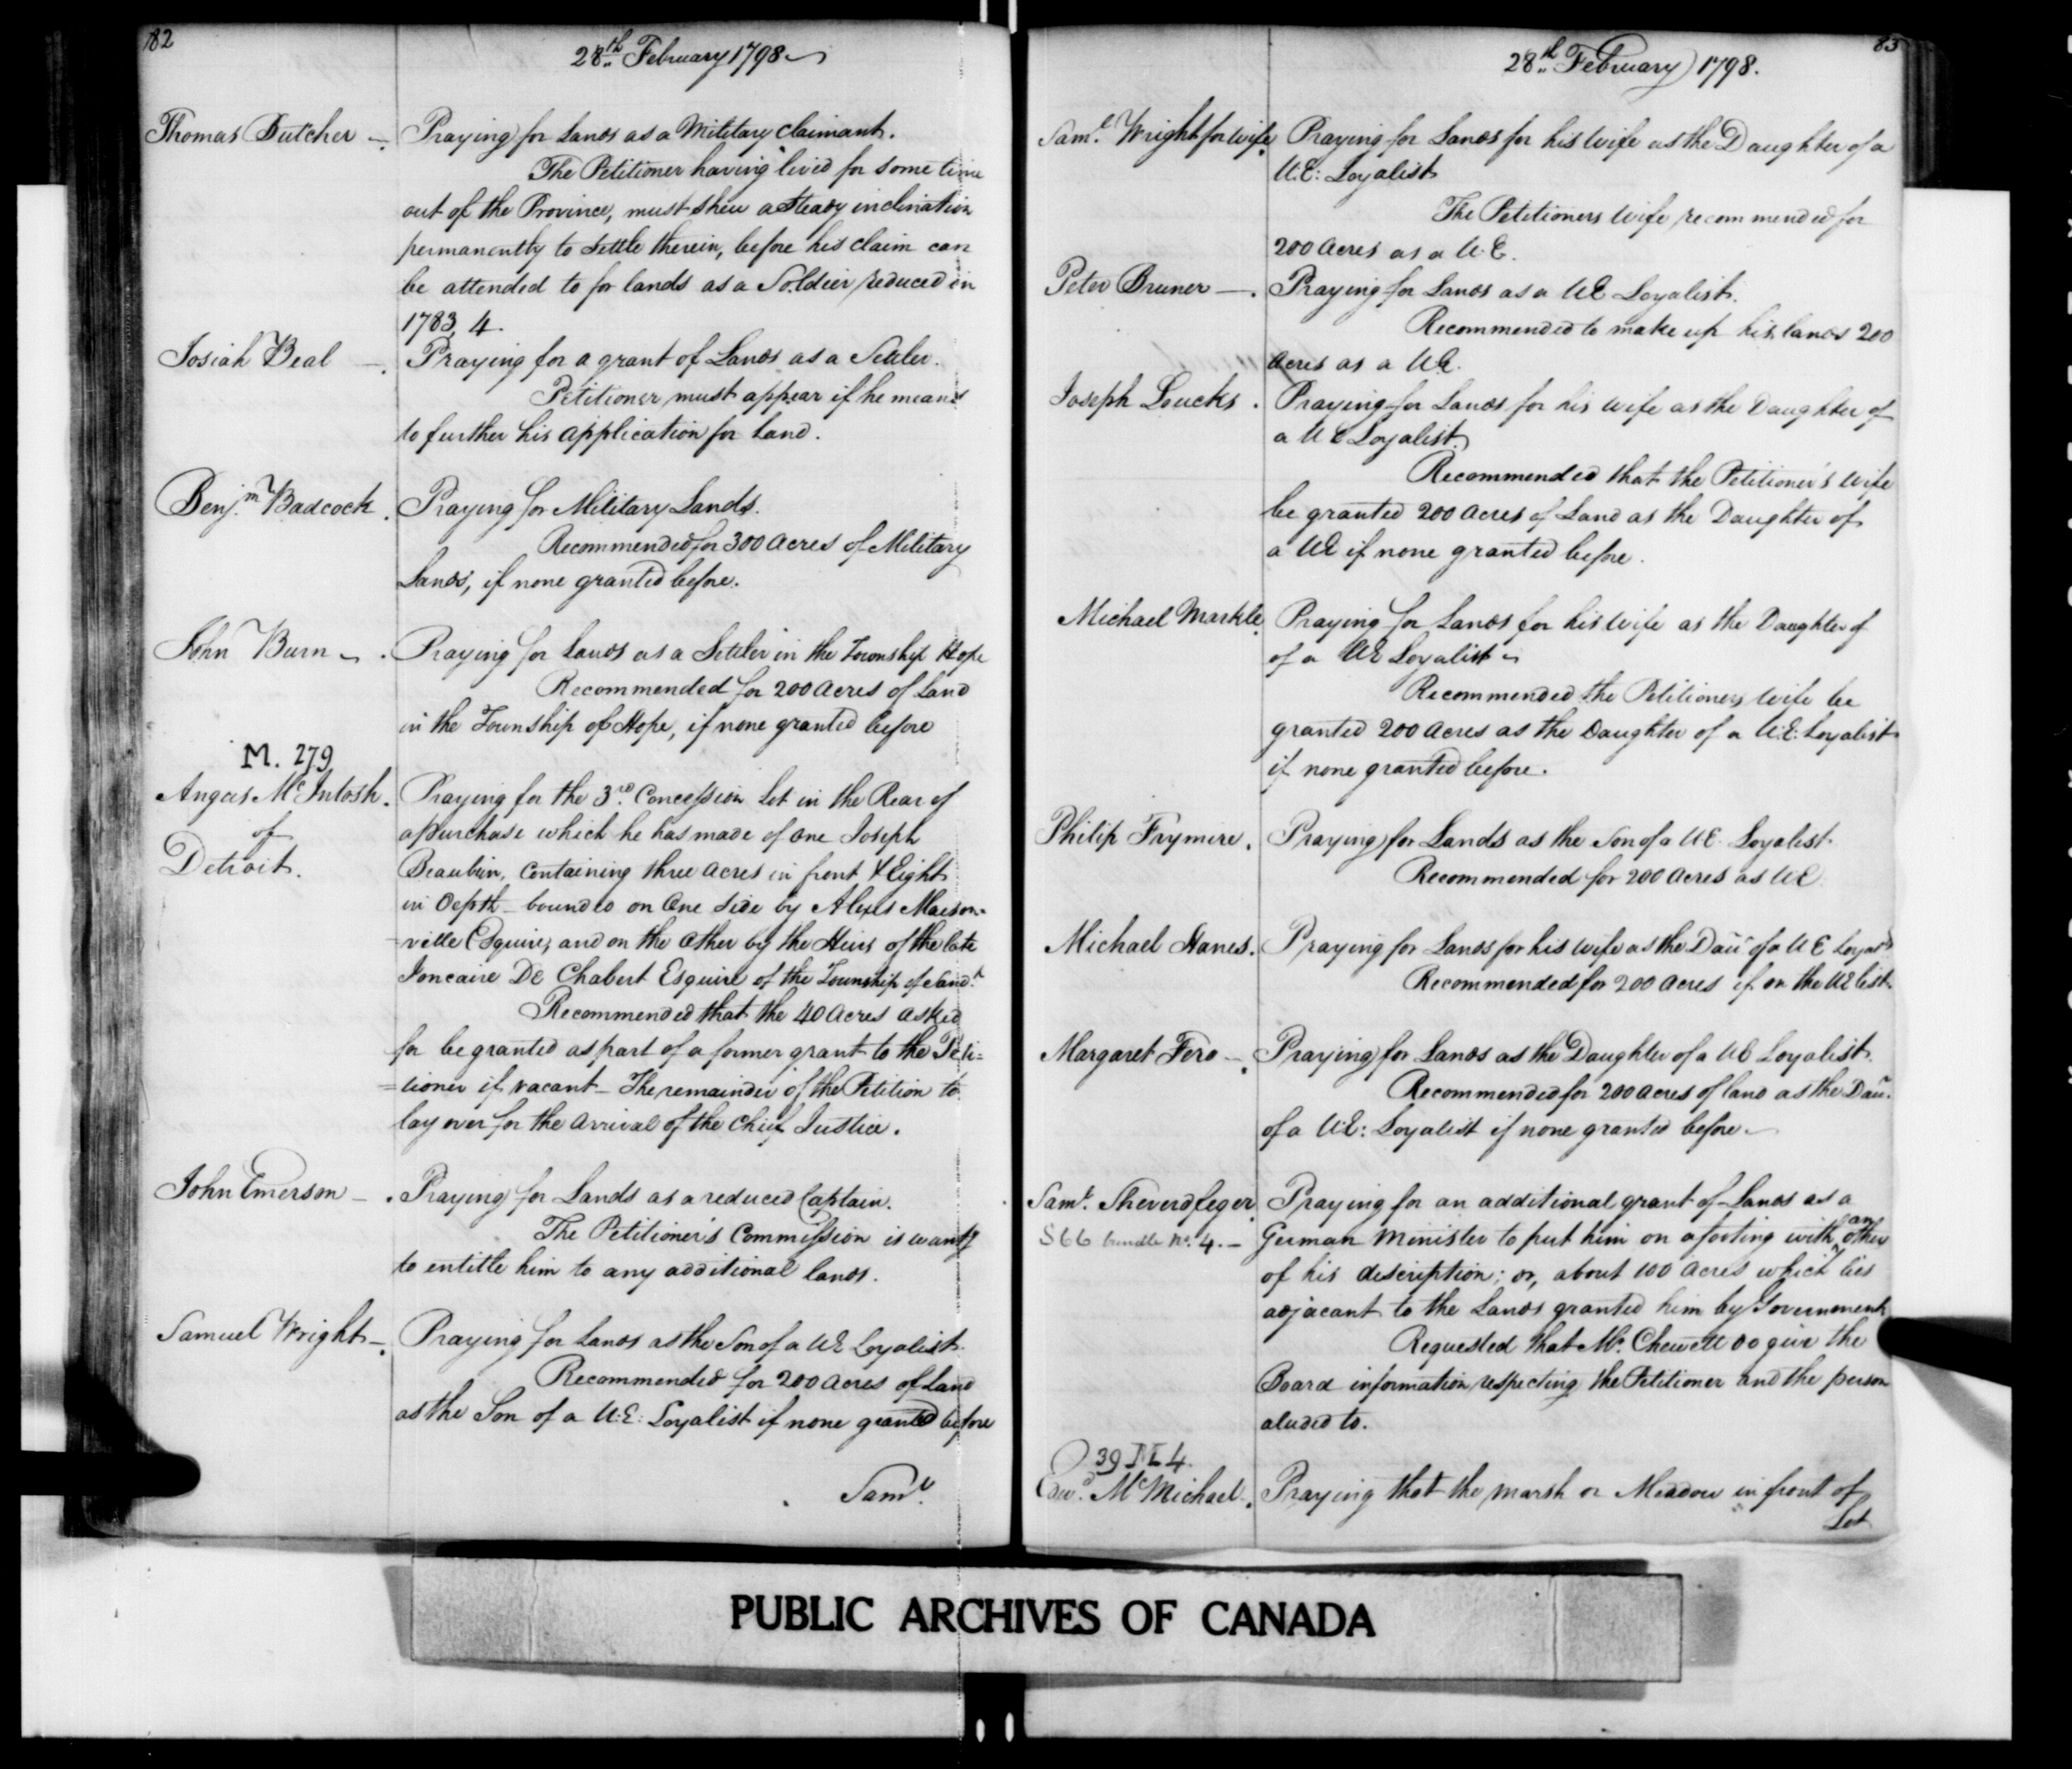 182
28th February 1798
Thomas Butcher — Praying for Lands as a Military Claimant.
The Petitioner having lived for some time
out of the Province, must shew a steady inclination
permanently to settle therein, before his claim can
be attended to for lands as a Soldier reduced in
1783, 4.
Josiah Beal — Praying for a grant of Lands as a Settler.
Petitioner must appear if he means
to further his application for Land.
Benjm Badcock. Praying for Military Lands.
Recommended for 300 Acres of Military
Lands, if none granted before.
John Burn — Praying for Lands as a Settler in the Township Hope
Recommended for 200 Acres of Land
in the Township of Hope, if none granted before
M. 279
Angus McIntosh. Praying for the 3rd Concession Lot in the Rear of
of a purchase which he has made of one Joseph
Detroit. Beaubien, containing three acres in front & Eight
in Depth — bounded on One side by Alexis Maison=
=ville Esquire, and on the other by the Heirs of the late
Joncaire De Chabert Esquire of the Township of Sandh
Recommended that the 40 Acres asked
for be granted as part of a former grant to the Peti=
=tioner if vacant — The remainder of the Petition to
lay over for the arrival of the Chief Justice.
John Emerson — . Praying for Lands as a reduced Captain.
The Petitioner's Commission is wantg
to entitle him to any additional lands.
Samuel Wright — Praying for Lands as the Son of a UE Loyalist.
Recommended for 200 Acres of Land
as the Son of a U:E: Loyalist if none granted before
Saml
83
28th February 1798.
Saml Wright for wife. Praying for Lands for his wife as the Daughter of a
U.E: Loyalist
The Petitioners wife recommended for
200 Acres as a U.E.
Peter Bruner — . Praying for Lands as a UE Loyalist.
Recommended to make up his lands 200
Acres as a UE.
Joseph Loucks . Praying for Lands for his wife as the Daughter of
a UE Loyalist.
Recommended that the Petitioner's wife
be granted 200 Acres of Land as the Daughter of
a UE if none granted before.
Michael Markle. Praying for Lands for his wife as the Daughter of
of a UE Loyalist
Recommended the Petitioners wife be
granted 200 Acres as the Daughter of a U.E. Loyalist
if none granted before.
Philip Frymire. Praying for Lands as the Son of a UE Loyalist.
Recommended for 200 Acres as UE
Michael Hanes. Praying for Lands for his wife as the Daur of a UE Loyat
Recommended for 200 Acres if on the UE list.
Margaret Fero — . Praying for Lands as the Daughter of a UE Loyalist.
Recommended for 200 Acres of land as the Daur.
of a U.E: Loyalist if none granted before —
Saml Sheverdfeger. Praying for an additional grant of Lands as a
S66 bundle No. 4. — German Minister to put him on a footing with an other
of his description; or, about 100 Acres which lies
adjacant to the Lands granted him by Government
Requested that Mr. Chewett do give the
Board information respecting the Petitioner and the person
aluded to.
39 I L 4.
Edwd. McMichael. Praying that the marsh or Meadow in front of
Lot
PUBLIC ARCHIVES OF CANADA